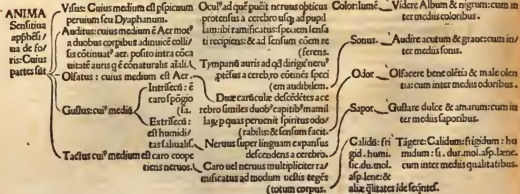 ANIMA
Sensitiua
apphēsiua de foris: Cuius
partes sūt
Visus: Cuius medium est pspicuum
peruium seu Dyaphanum.
Auditus: cuius medium ē Aer mot⁹
a duobus corpibus adinuicē collisis
cōtinuat⁹ aer. posito intra cōcauitatē
auris q̄ ē cōnaturalis aīali.
Olfatus : cuius medium est Aer.
Gustus: cui⁹ mediū
Intrisecū: ē
caro spōgiosa.
Extrisecū:
est humiditas
saliualis.
Tactus cui⁹ medium est caro cooperiens
neruos.
Ocul⁹ ad quē puēit neruus opticus
protensus a cerebro usq; ad pupillam:
ibi ramificatus: speciem sensati
recipiens: & ad sensum cōem referens.
Tympanū auris ad qd dirigit neru⁹
ptēsus a cerebro cōtinēs speciem
audibilem.
Due carūcule descēdētes a cerebro
similes duob⁹ capitib⁹ mamillaȩ
p quas peruenit spiritus odorabilis
& sensum facit.
Neruus super linguam expansus
descendens a cerebro.
Caro uel neruus multipliciter ramificatus
ad modum uestis tegēs
totum corpus.
Color: lumē
Sonus.
Odor
Sapor
Calidū: frigid.
humi.
sic. du. mol.
asp. lene: &
aliæ q̄litates ide seq̄ntes.
Videre Album & nigrum: cum inter
medijs coloribus.
Audire acutum & graue: cum inter
medijs sonis.
Olfacere bene olētia & male olentia:
cum inter medijs odoribus.
Gustare dulce & amarum: cum inter
medijs saporibus.
Tāgere: Calidum: frigidum: humidum :
si. dur. mol. asp. lene.
cum inter medijs qualitatibus.